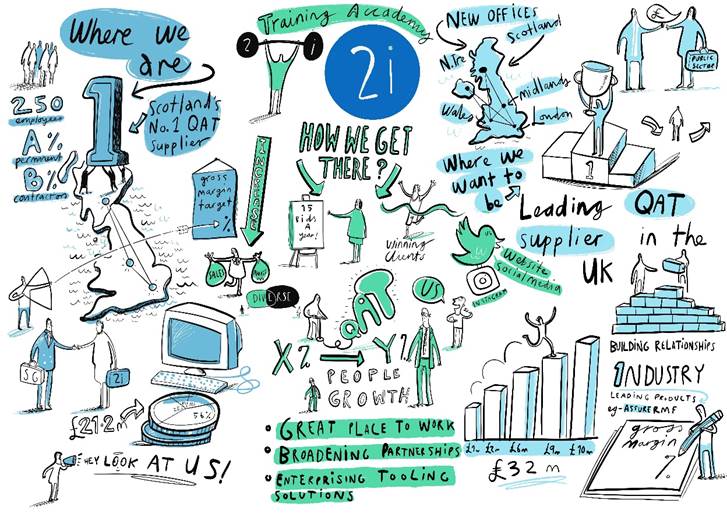 Where we
are
1
Scotland's
No.1 QAT
Supplier
250
employees
A%
permanent
B%
contractors
gross
margin
target
%
SG
2i
£21.2m
56%
HEY LOOK AT US!
Training Academy
2
i
2i
HOW WE GET
THERE?
INCREASE
15
Bids
A
year!
Winning
Clients
SALES
DIVERSE
QAT
US
X% → Y%
PEOPLE
GROWTH
• GREAT PLACE TO WORK
• BROADENING PARTNERSHIPS
• ENTERPRISING TOOLING
SOLUTIONS
Website
Social media
INSTAGRAM
NEW OFFICES
Scotland
N.Ire
Midlands
Wales
London
£
PUBLIC
SECTOR
1
Where we
want to
be
Leading QAT
supplier in the
UK
BUILDING RELATIONSHIPS
£6m £9m £10m
£32m
1NDUSTRY
LEADING PRODUCTS
eg - ASSURE RMF
gross
margin
%